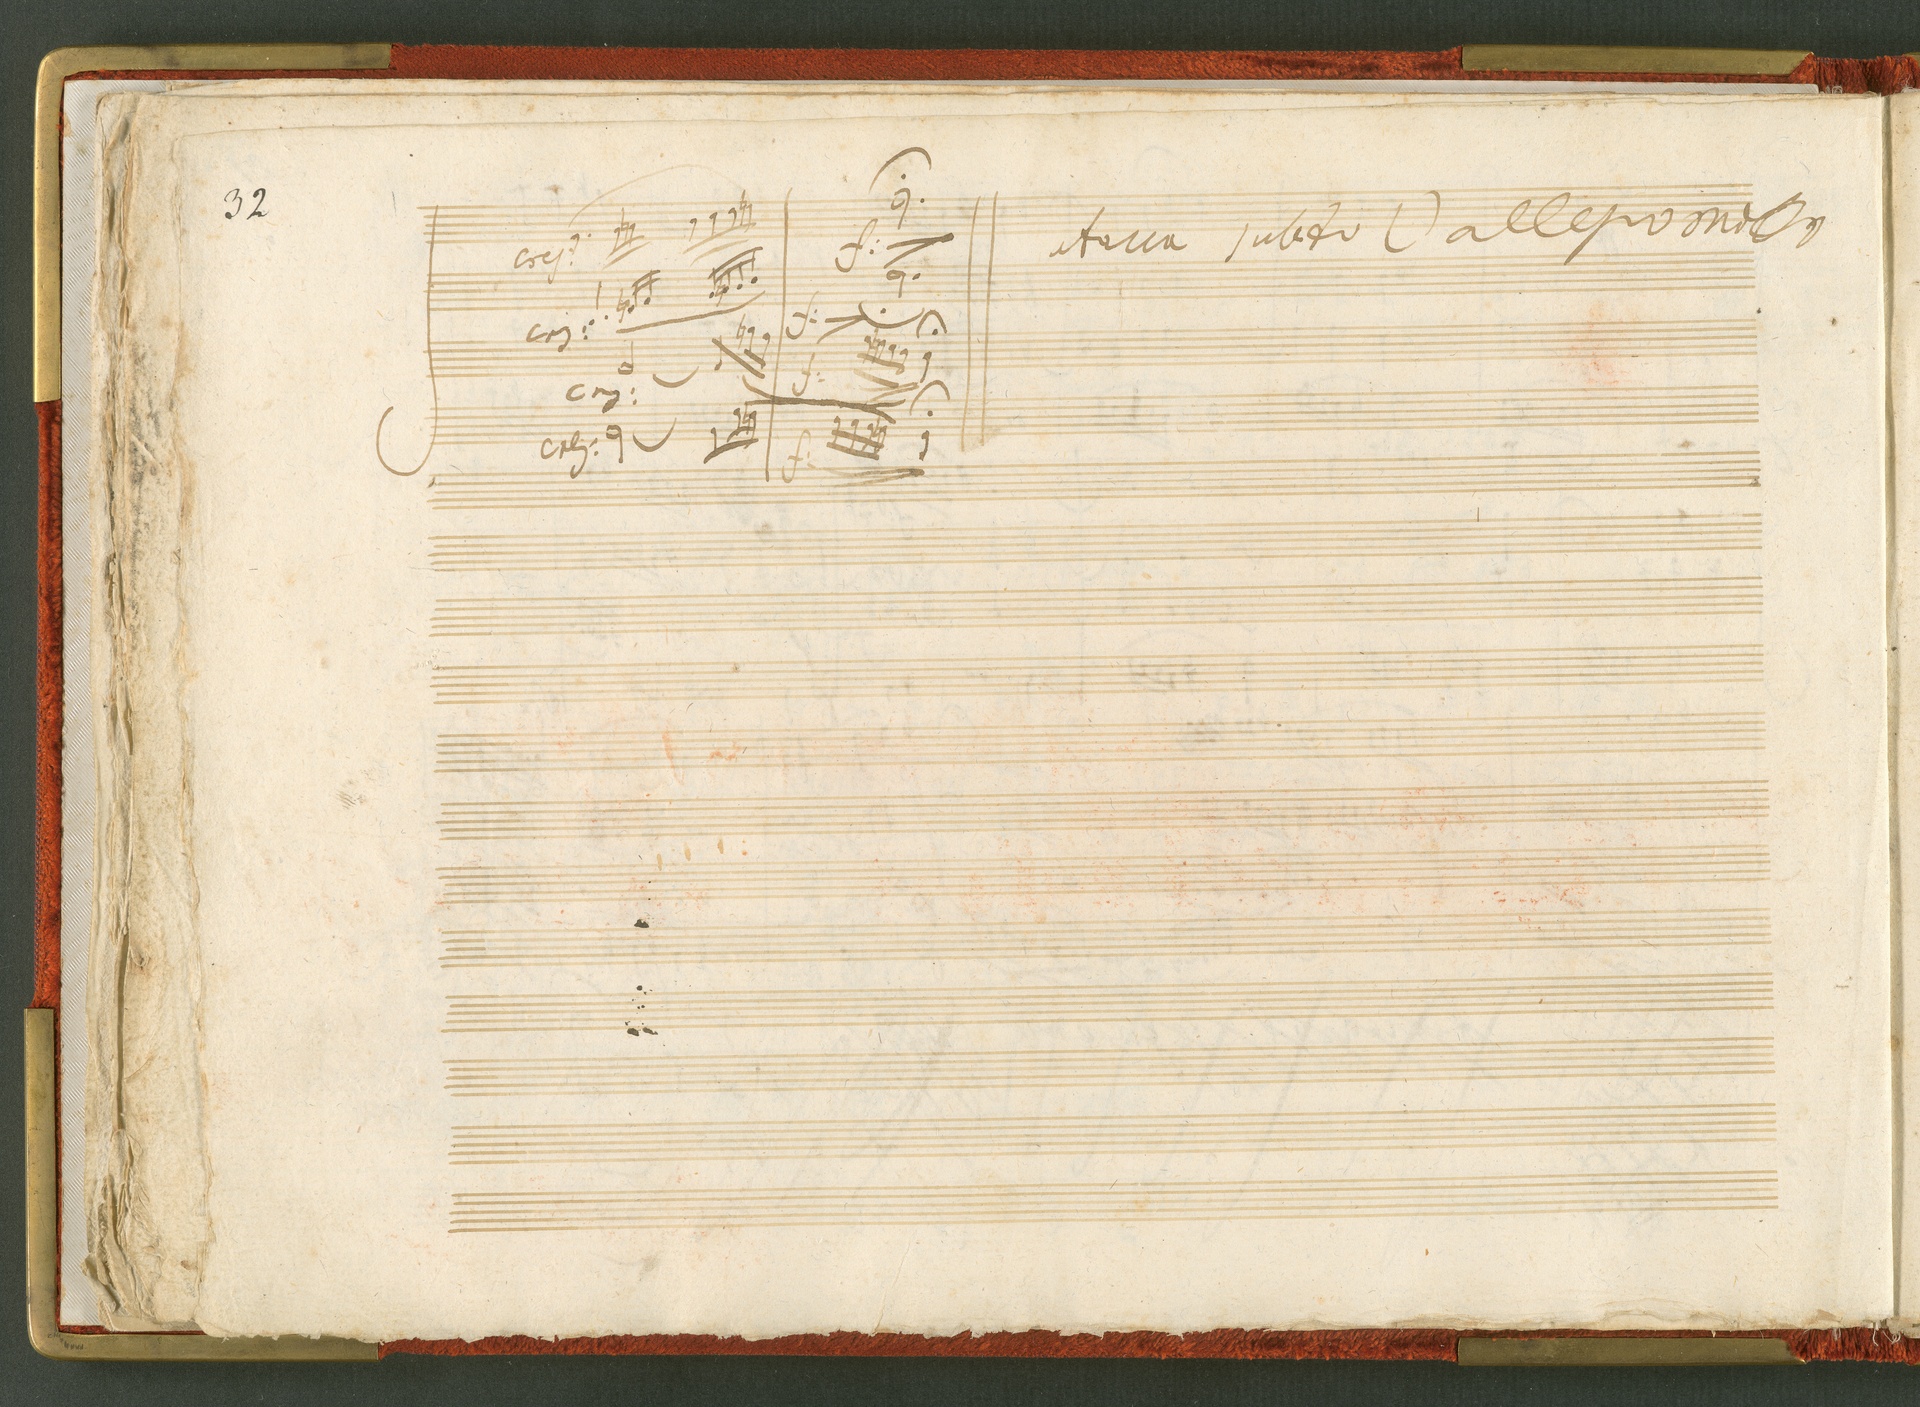 32
attacca subito () allegro molto
cresc: f:
cresc: f:
cresc: f:
cresc: f: